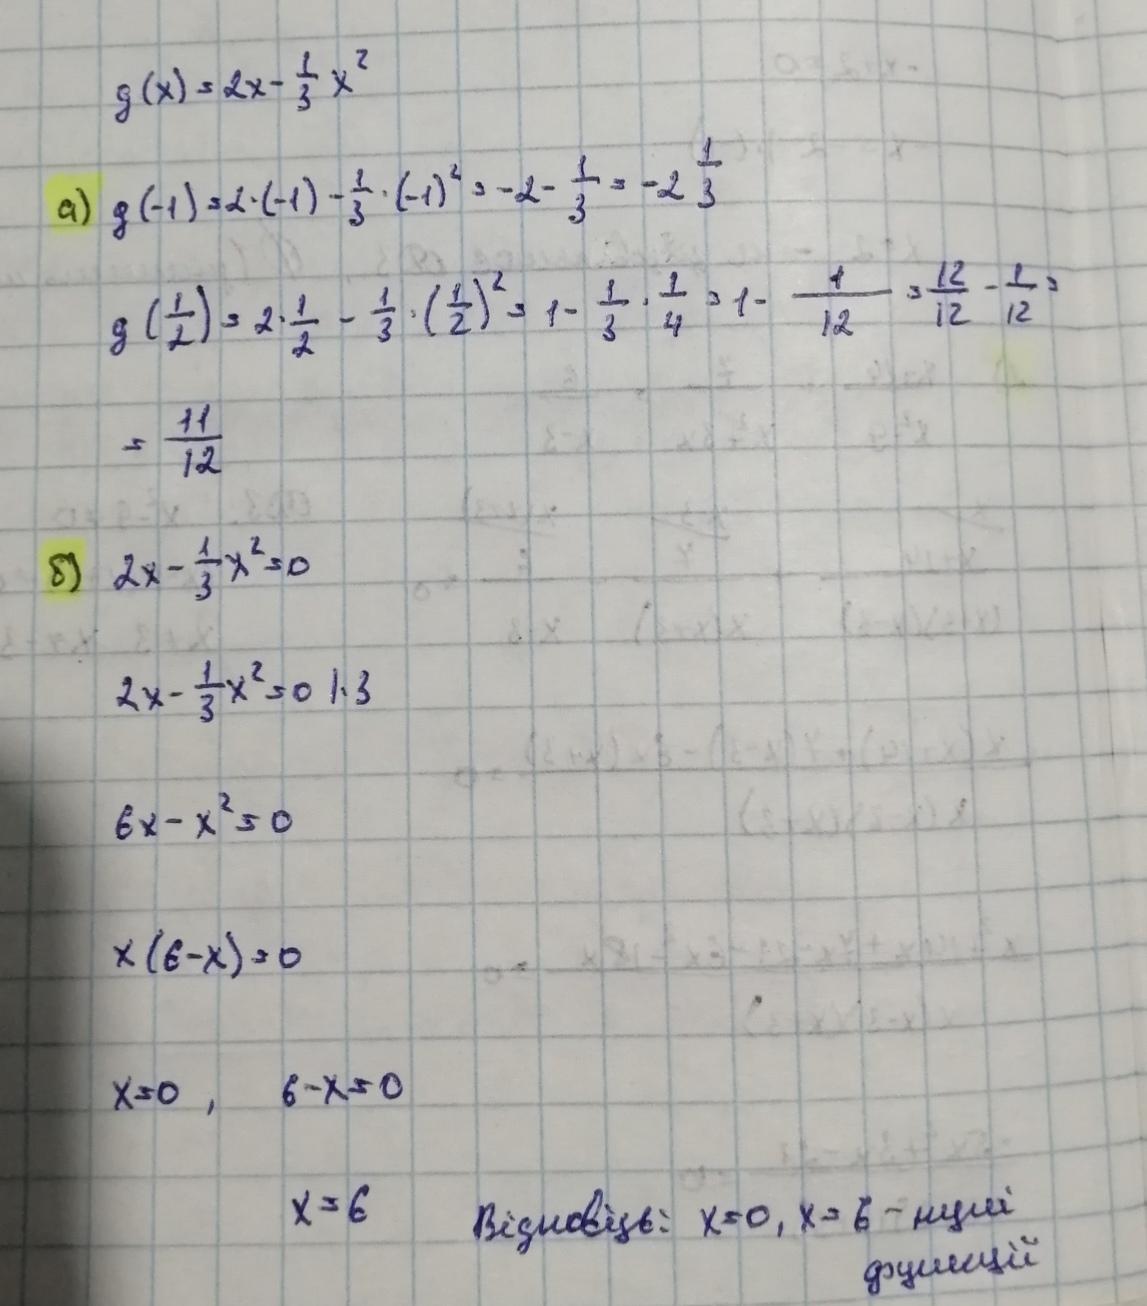 g(x) = 2x - 1/3 x²
а) g(-1) = 2·(-1) - 1/3 · (-1)² = -2 - 1/3 = -2 1/3
g(1/2) = 2·1/2 - 1/3 · (1/2)² = 1 - 1/3 · 1/4 = 1 - 1/12 = 12/12 - 1/12 =
= 11/12
б) 2x - 1/3 x² = 0
2x - 1/3 x² = 0 |·3
6x - x² = 0
x(6-x) = 0
x=0 , 6-x=0
x=6
Відповідь: x=0, x=6 - нулі
функції